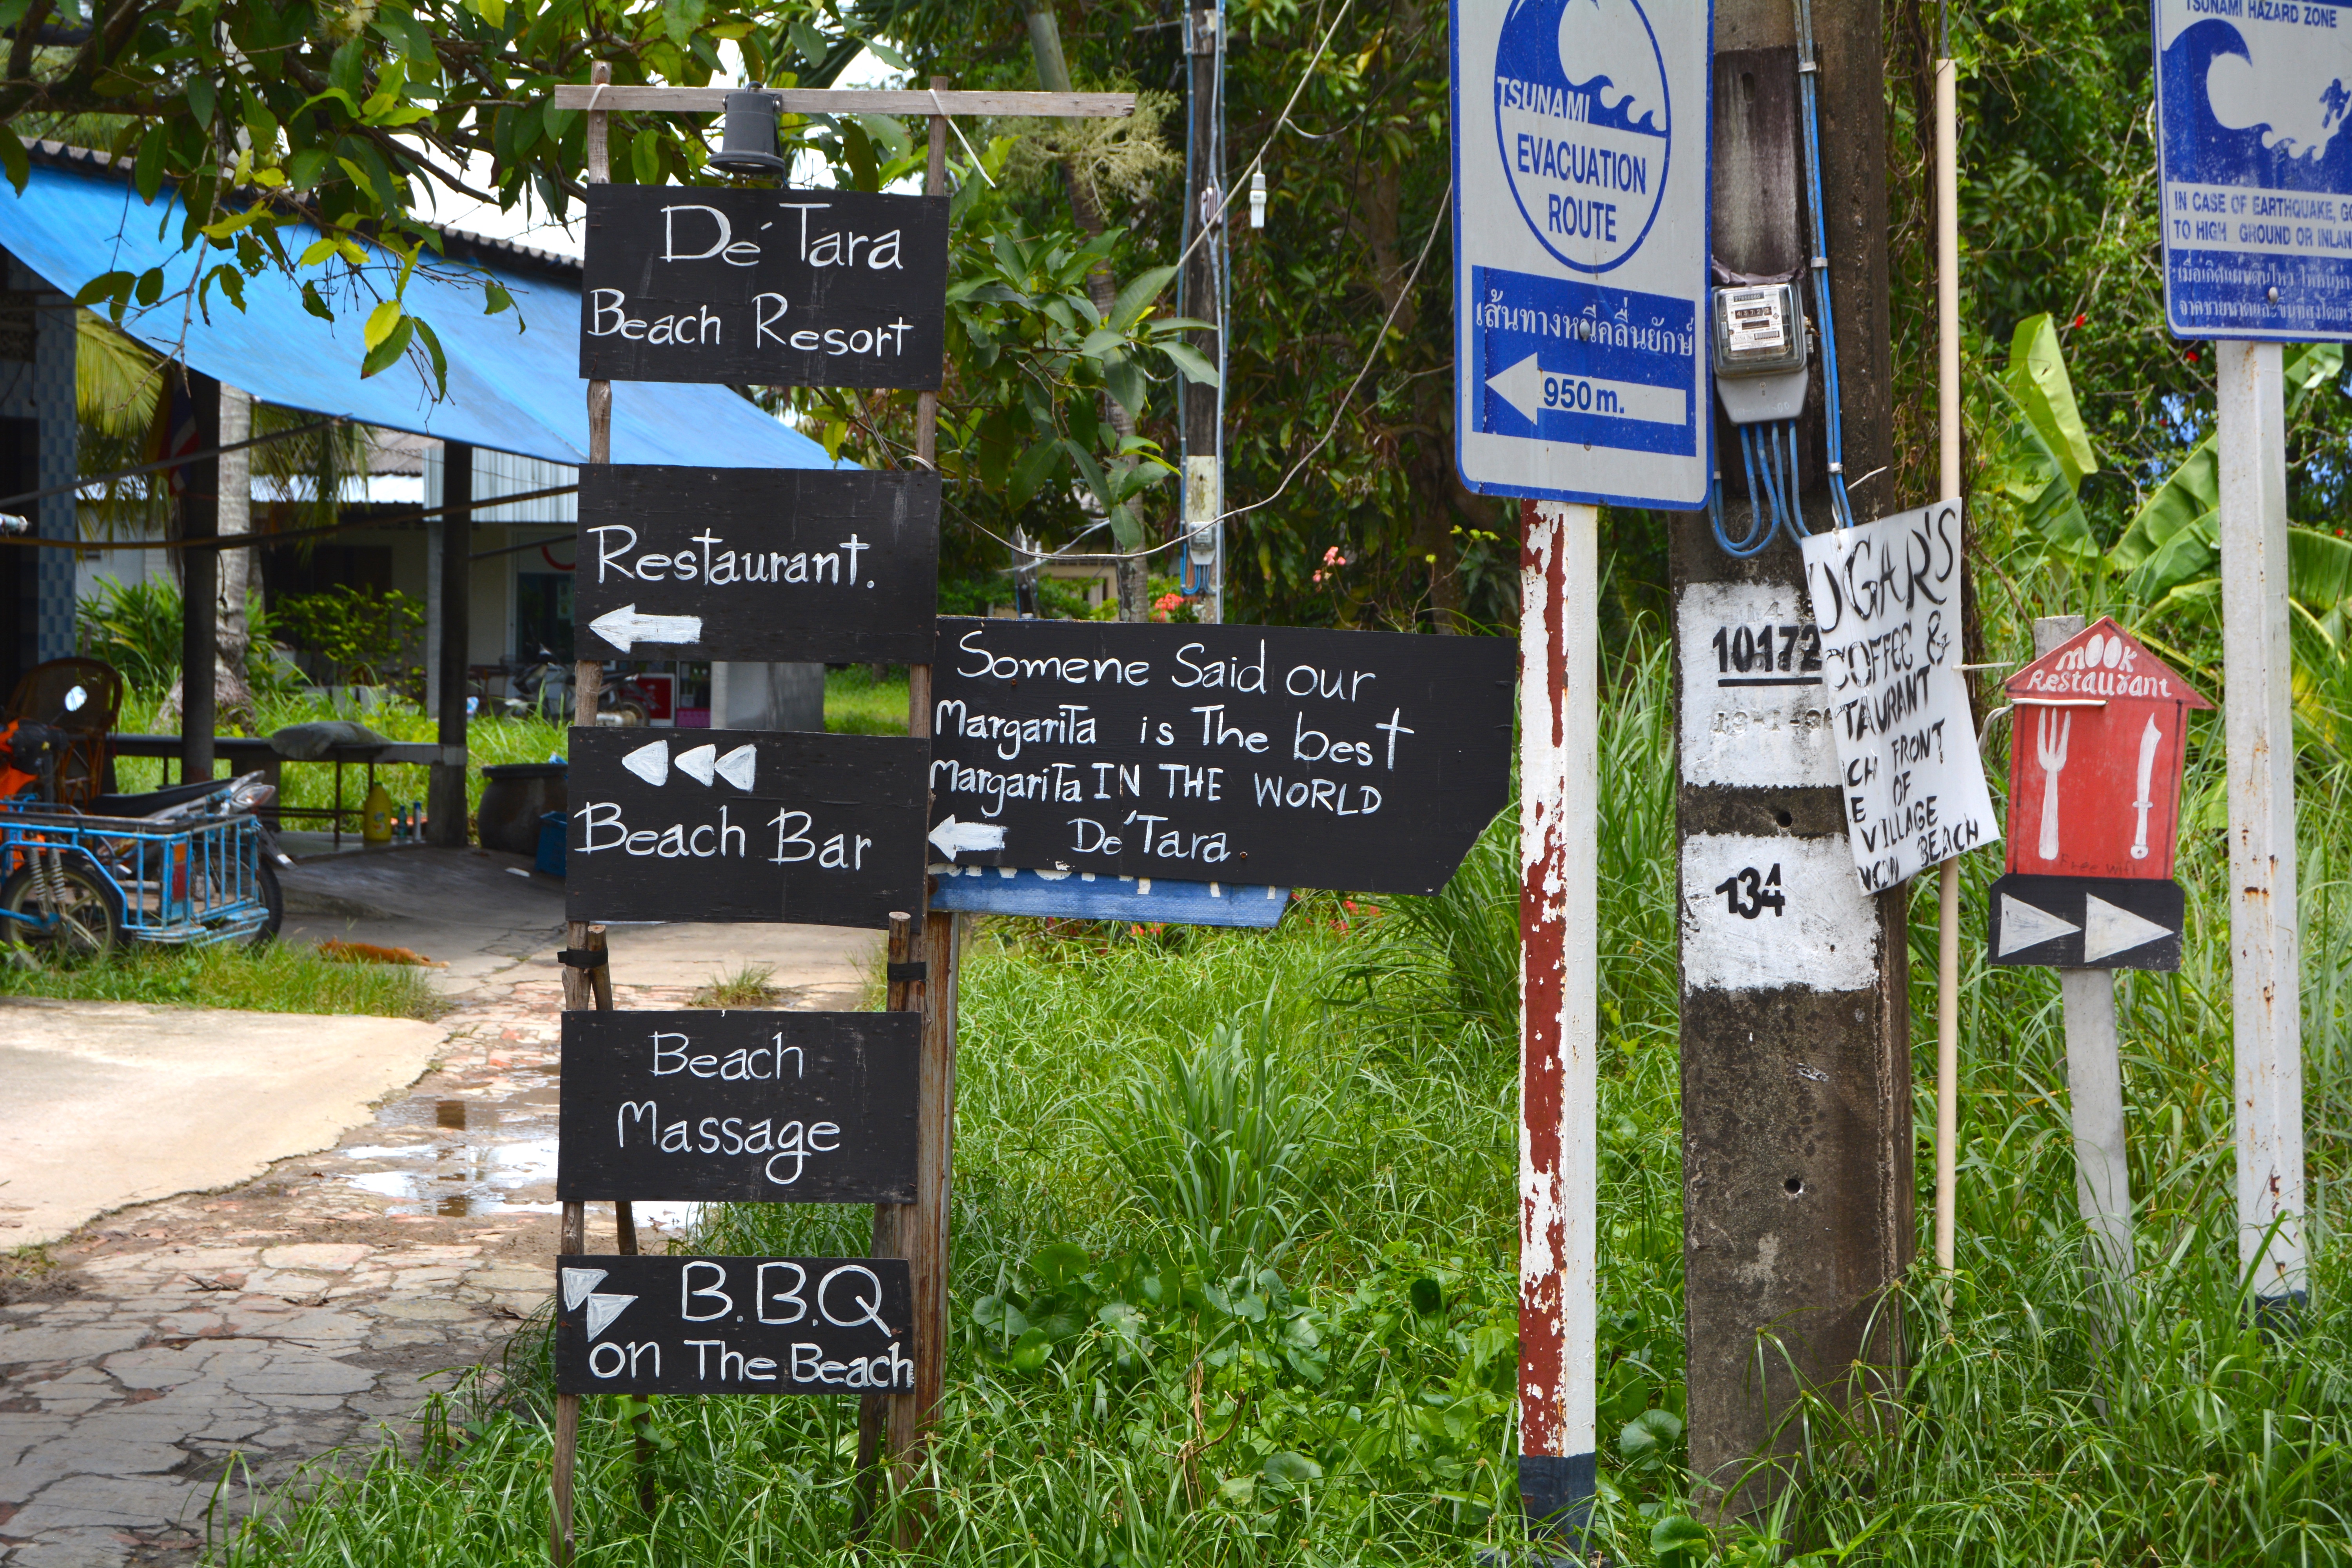 De'Tara
Beach Resort
Restaurant.
Beach Bar
Beach
Massage
B.B.Q
on The Beach
Somene Said our
Margarita is The best
Margarita IN THE WORLD
De'Tara
TSUNAMI
EVACUATION
ROUTE
เส้นทางหนีคลื่นยักษ์
950 m.
10172
134
UGAR'S
COFFEE &
TAURANT
FRONT
OF
VILLAGE
BEACH
MOOK
Restaurant
Free wifi
TSUNAMI HAZARD ZONE
IN CASE OF EARTHQUAKE, GO
TO HIGH GROUND OR INLAN